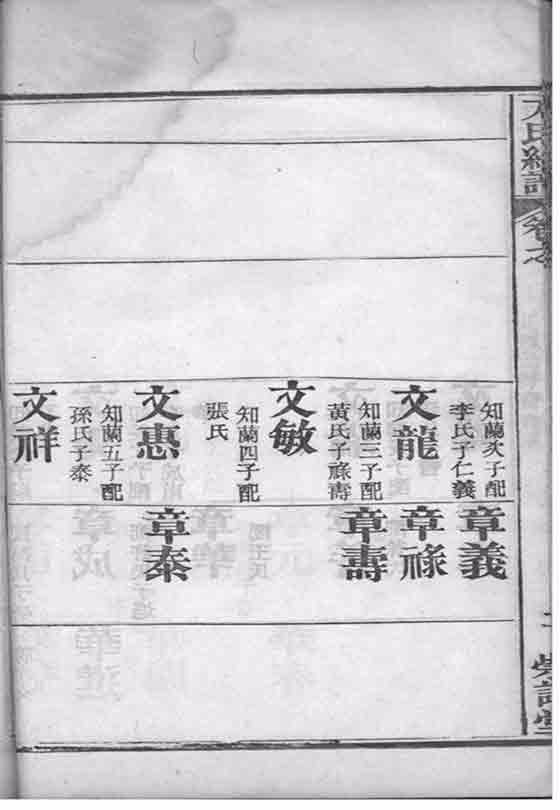 卷之
知蘭次子配
李氏子仁義
文龍
知蘭三子配
黃氏子祿壽
文敏
知蘭四子配
張氏
文惠
知蘭五子配
孫氏子泰
文祥
章義
章祿
章壽
章泰